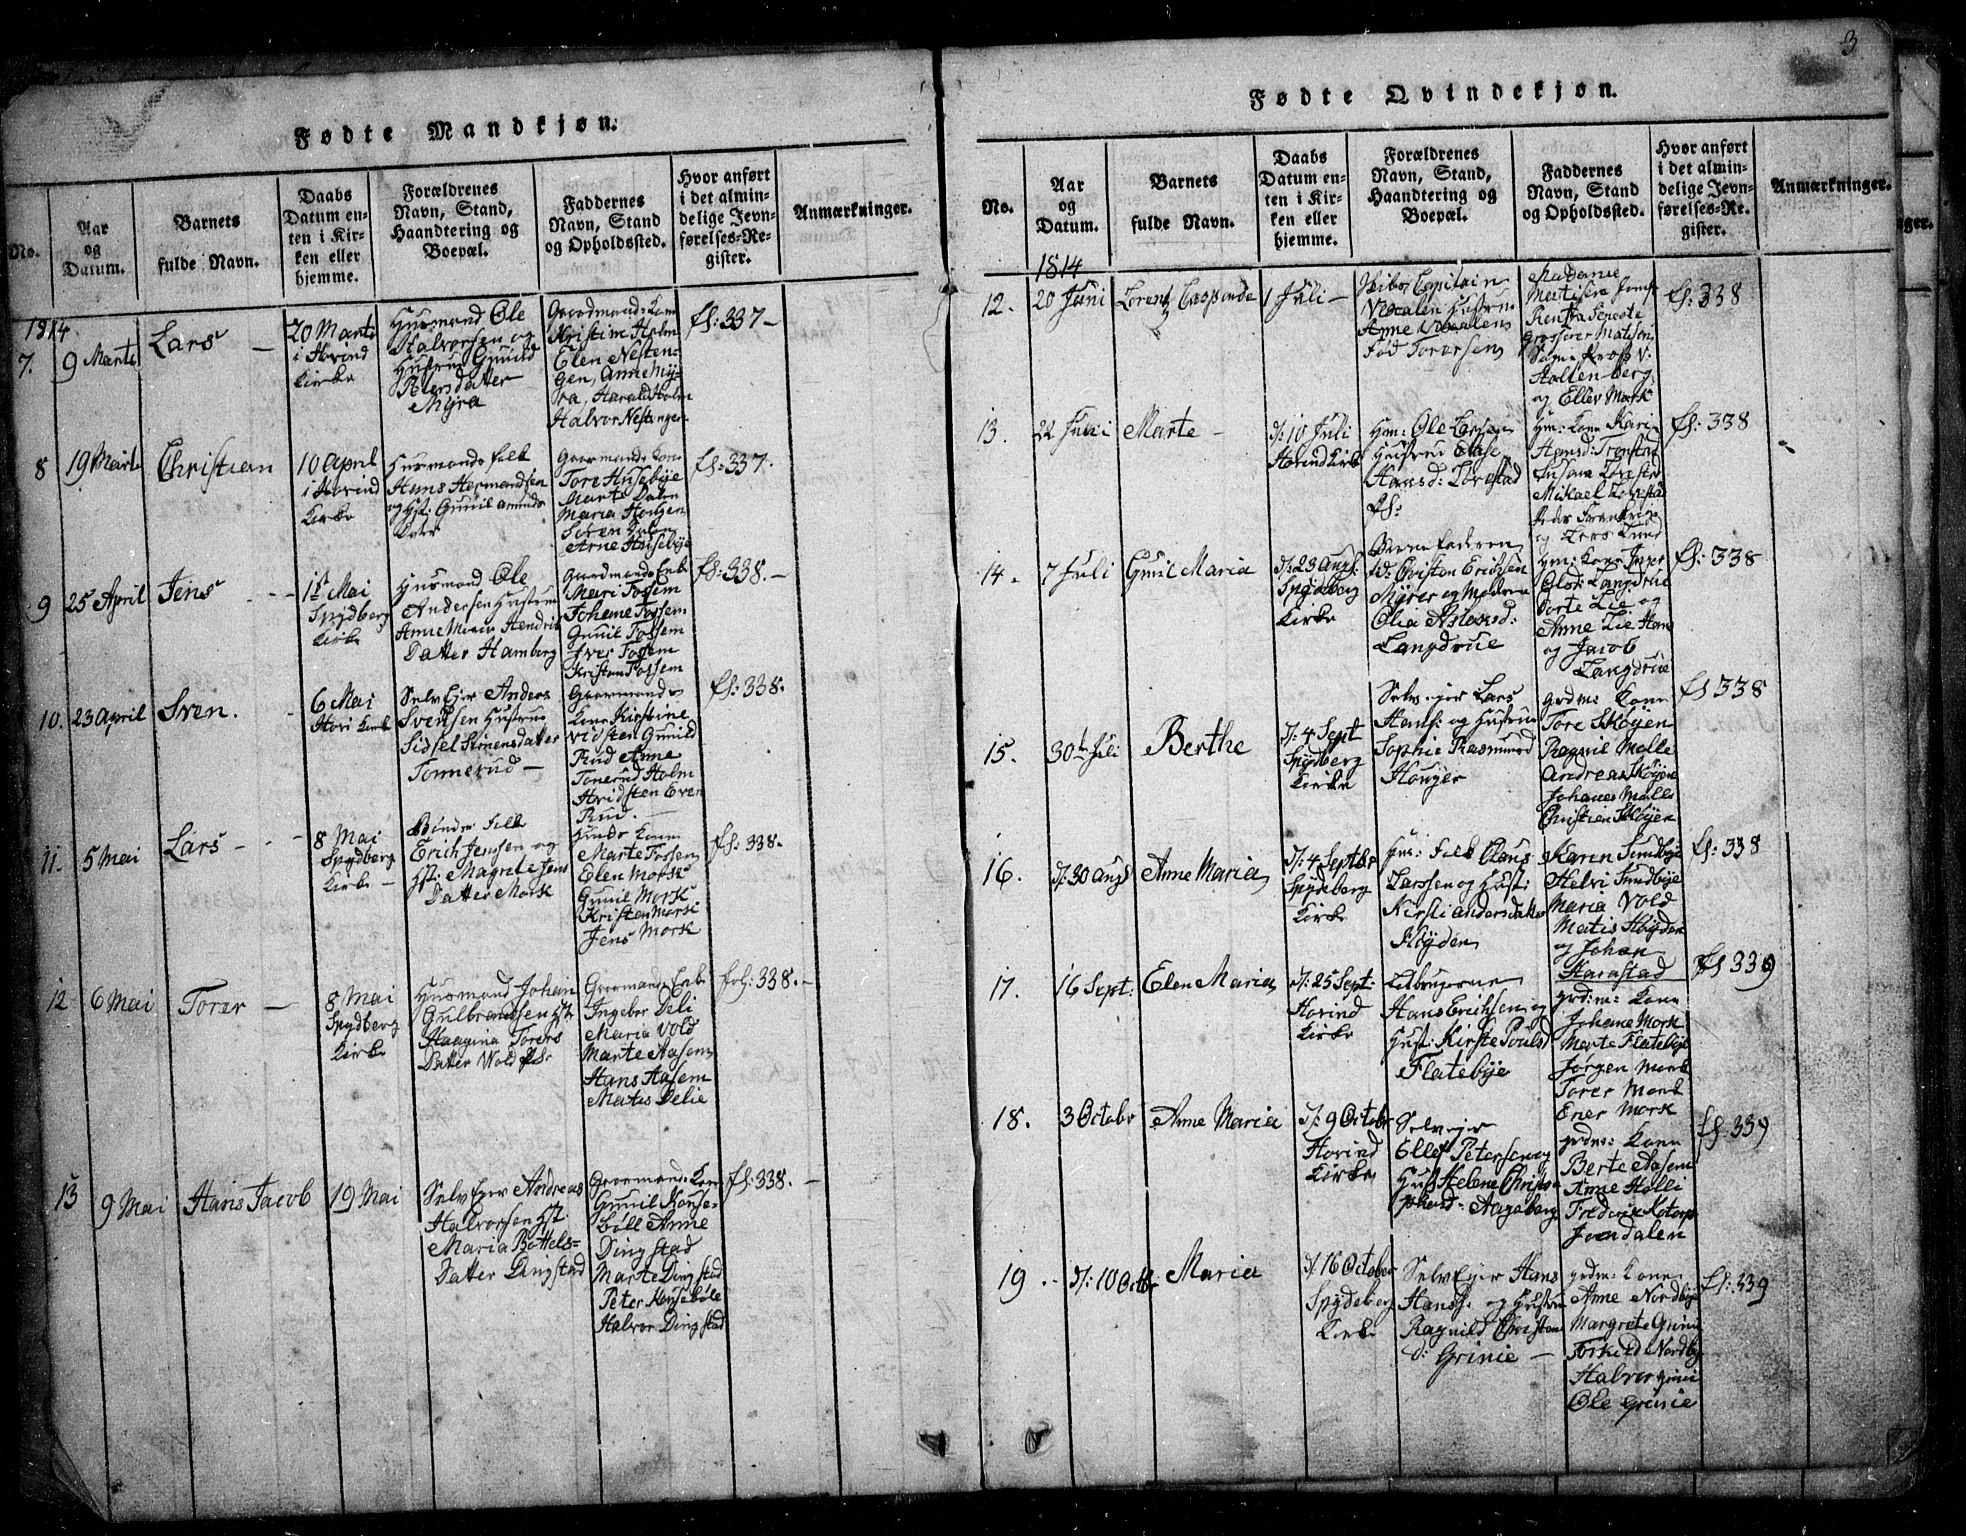 Fødte Mandkjøn.
No.
Aar
og
Datum.
Barnets
fulde Navn.
Daabs
Datum en-
ten i Kir-
ken eller
hjemme.
Forældrenes
Navn, Stand,
Haandtering og
Boepæl.
Faddernes
Navn, Stand
og Opholdssted.
Hvor anført
i det almin-
delige Jevn-
førelses-Re-
gister.
Anmærkninger.
1814
7.
9 Marts
Lars
20 Marts
i Hovind
Kirke
Husmand Ole
Halvorsen og
Hustrue Gunild
Petersdatter
Myra
Kristine Holm
Elen Nesten-
gen, Anne My-
ra, Harald Holm
Halvor Nestengen
fl: 337 -
8
19 Marts
Christian
10 April
i Hovind
Kirke
Husmands folk
Hans Hermandsen
og Hst: Gunil Amunds
Dater
Tore Husebye
Marte Dalen
Maria Hougen
Søren Dalen
Arne Husebye
fl: 337.
9
25 April
Jens
1st Mai
Spydberg
Kirke
Husmand Ole
Andersen Hustrue
Anne Maria Hendrix
Datter Hamberg
Mari Fossem
Johanne Fossem
Gunil Fossem
Iver Fossem
Kristen Fossem
fl: 338. -
10.
23 April
Sven.
6 Mai
Hovi Kirke
Selv Ejer Anders
Svensen Hustrue
Sidsel Simensdatter
Tonnerud -
Kone Kirstine
Vidsten Gunild
Rud Anne
Tonerud Holm
Hvidsten Even
Rud.
fl: 338.
11.
5 Mai
Lars -
8 Mai
Spydberg
Kirke -
Bønder Folk
Erich Jensen og
Hst: Magnil Jens
Datter Mork
Marte Fossen
Elen Mork
Gunil Mork
Kristen Mork
Jens Mork
fl: 338.
12
6 Mai
Torer -
8 Mai
Spydberg
Kirke
Husmand Johan
Gulbrandsen Hst
Haagina Torers
Datter Wold
Ingebor Deli
Maria Vold
Marte Aasem
Hans Aasem
Mates Delie
fol: 338. -
13
9 Mai
Hans Jacob
19 Mai
Selv Ejer Andreas
Halvorsen Hst
Maria Bottels-
Datter Dingstad
Gunil Konse-
bøll Anne
Ding stad
Marte Ding stad
Peter Konsebøle
Halvor Ding stad
fl: 338. -
3
Fødte Qvindekjøn.
No.
Aar
og
Datum.
Barnets
fulde Navn.
Daabs
Datum en-
ten i Kir-
ken eller
hjemme.
Forældrenes
Navn, Stand,
Haandtering og
Boepæl.
Faddernes
Navn, Stand
og Opholdssted.
Hvor anført
i det almin-
delige Jevn-
førelses-Re-
gister.
Anmærkninger.
1814
12.
20 Juni
1 Juli -
Skibs Capitain
Hustrue
Anne
Fød Torersen
Madame
og Ellev Mork
fl: 338
13.
22 Juni
Marte -
d: 10 Juli
Hovind Kirke
Hm: Ole Larsen
Hustrue Else
Hansd: Lørestad
Hm: Kone Kari
Mikael Lørestad
og Lars Lund
fl: 338
14.
7 Juli
Gunil Maria
d: 23 Aug:
Spydberg
Kirke
Barne faderen
Christen Erichsen
Myrer og Moderen
Olia Aslaksd:
Langdrue
Hm: Kone Inger
Olsd: Langdrue
Dorte Lie og
Anne Lie Hans
og Jacob
Langdrue
fl: 338
15.
30te Juli
Berthe
d: 4 Sept
Spydberg
Kirke
Selv ejer Lars
Hans: og Hustrue
Sophie Rasmusd
Houger
grdm: Kone
Tore Skøyen
Ragnil Molle
Andreas Skøyen
Johanes Molle
Christien Skøyen
fl 338
16.
d: 30 Augs
Anne Maria
d: 4 Septbr
Spydeberg
Kirke
Hm: Folk Claus
Larssen og Hust:
Kirsti Andersdatter
Høyden
Karen Sundbye
Helvi Sundbye
Maria Vold
Matis Høyden
og Johan
Harastad
fl: 338
17.
16 Sept:
Elen Maria
d: 25 Sept:
Hovind
Kirke
Hans Erichsen og
Hust: Kirste Pouls d
Flatebye
grd:m: Kone
Johane Mork
Marte Flatebye
Jørgen Mork
Torer Mork
Ener Mork
fl 339
18.
3 Octobr
Anne Maria
d: 9 Octobr
Hovind
Kirke
Selv ejer
Ellef Petersen og
Hus Helene Christo
phersd: Aagaberg
grdm: Kone
Berte Aasem
Anne Holli
Frederik Kotorp
Jondalen
fl: 339
19.
d: 10 Octbr
Maria
d: 16 October
Spydeberg
Kirke
Selv Ejer Hans
Hans: og Hustrue
Ragnild Christens
d: Grinie -
grdm: Kone
Anne Nordbye
Margrete Grini
Torkild Nordby
Halvor Grini
Ole Grinie
fl: 339